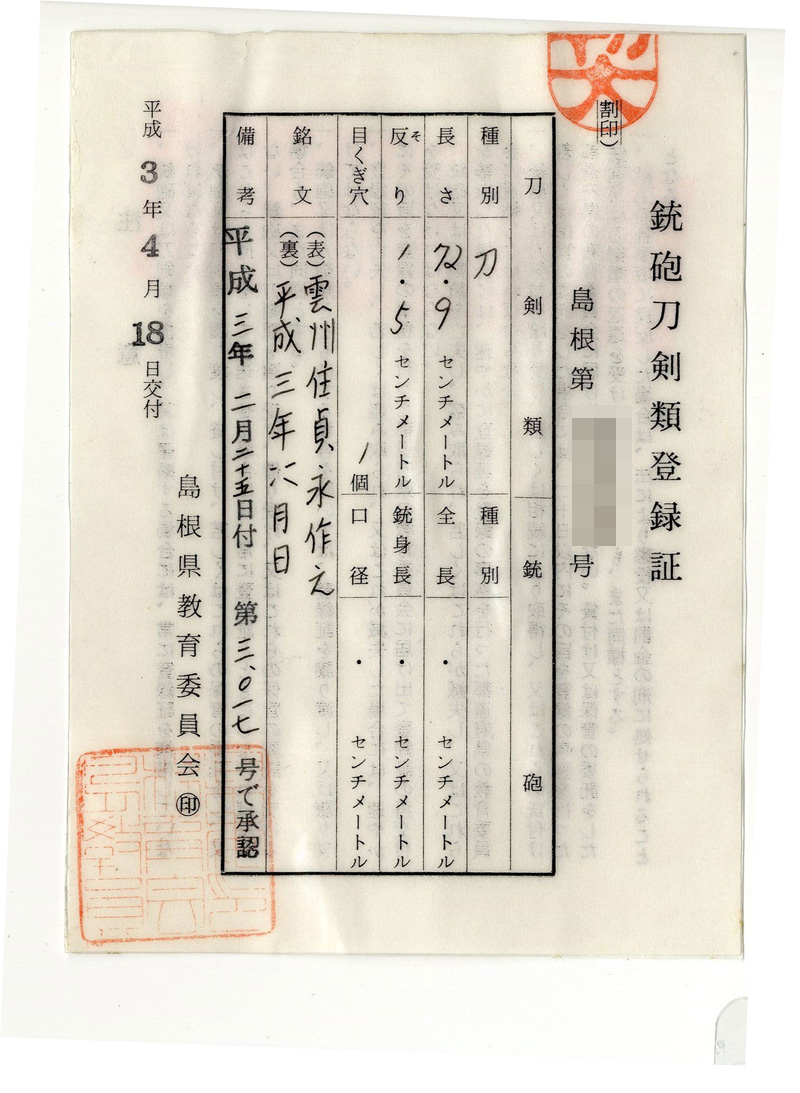 銃砲刀剣類登録証
(割印)
島根第 号
刀剣類 銃砲
種別 刀 種別
長さ 72・9 センチメートル 全長 ・ センチメートル
反(そ)り 1・5 センチメートル 銃身長 ・ センチメートル
目くぎ穴 1個 口径 ・ センチメートル
銘文 (表) 雲州住貞永作之
(裏) 平成三年六月日
備考 平成三年二月二十五日付 第三、〇一七号で承認
平成3年4月18日交付
島根県教育委員会㊞